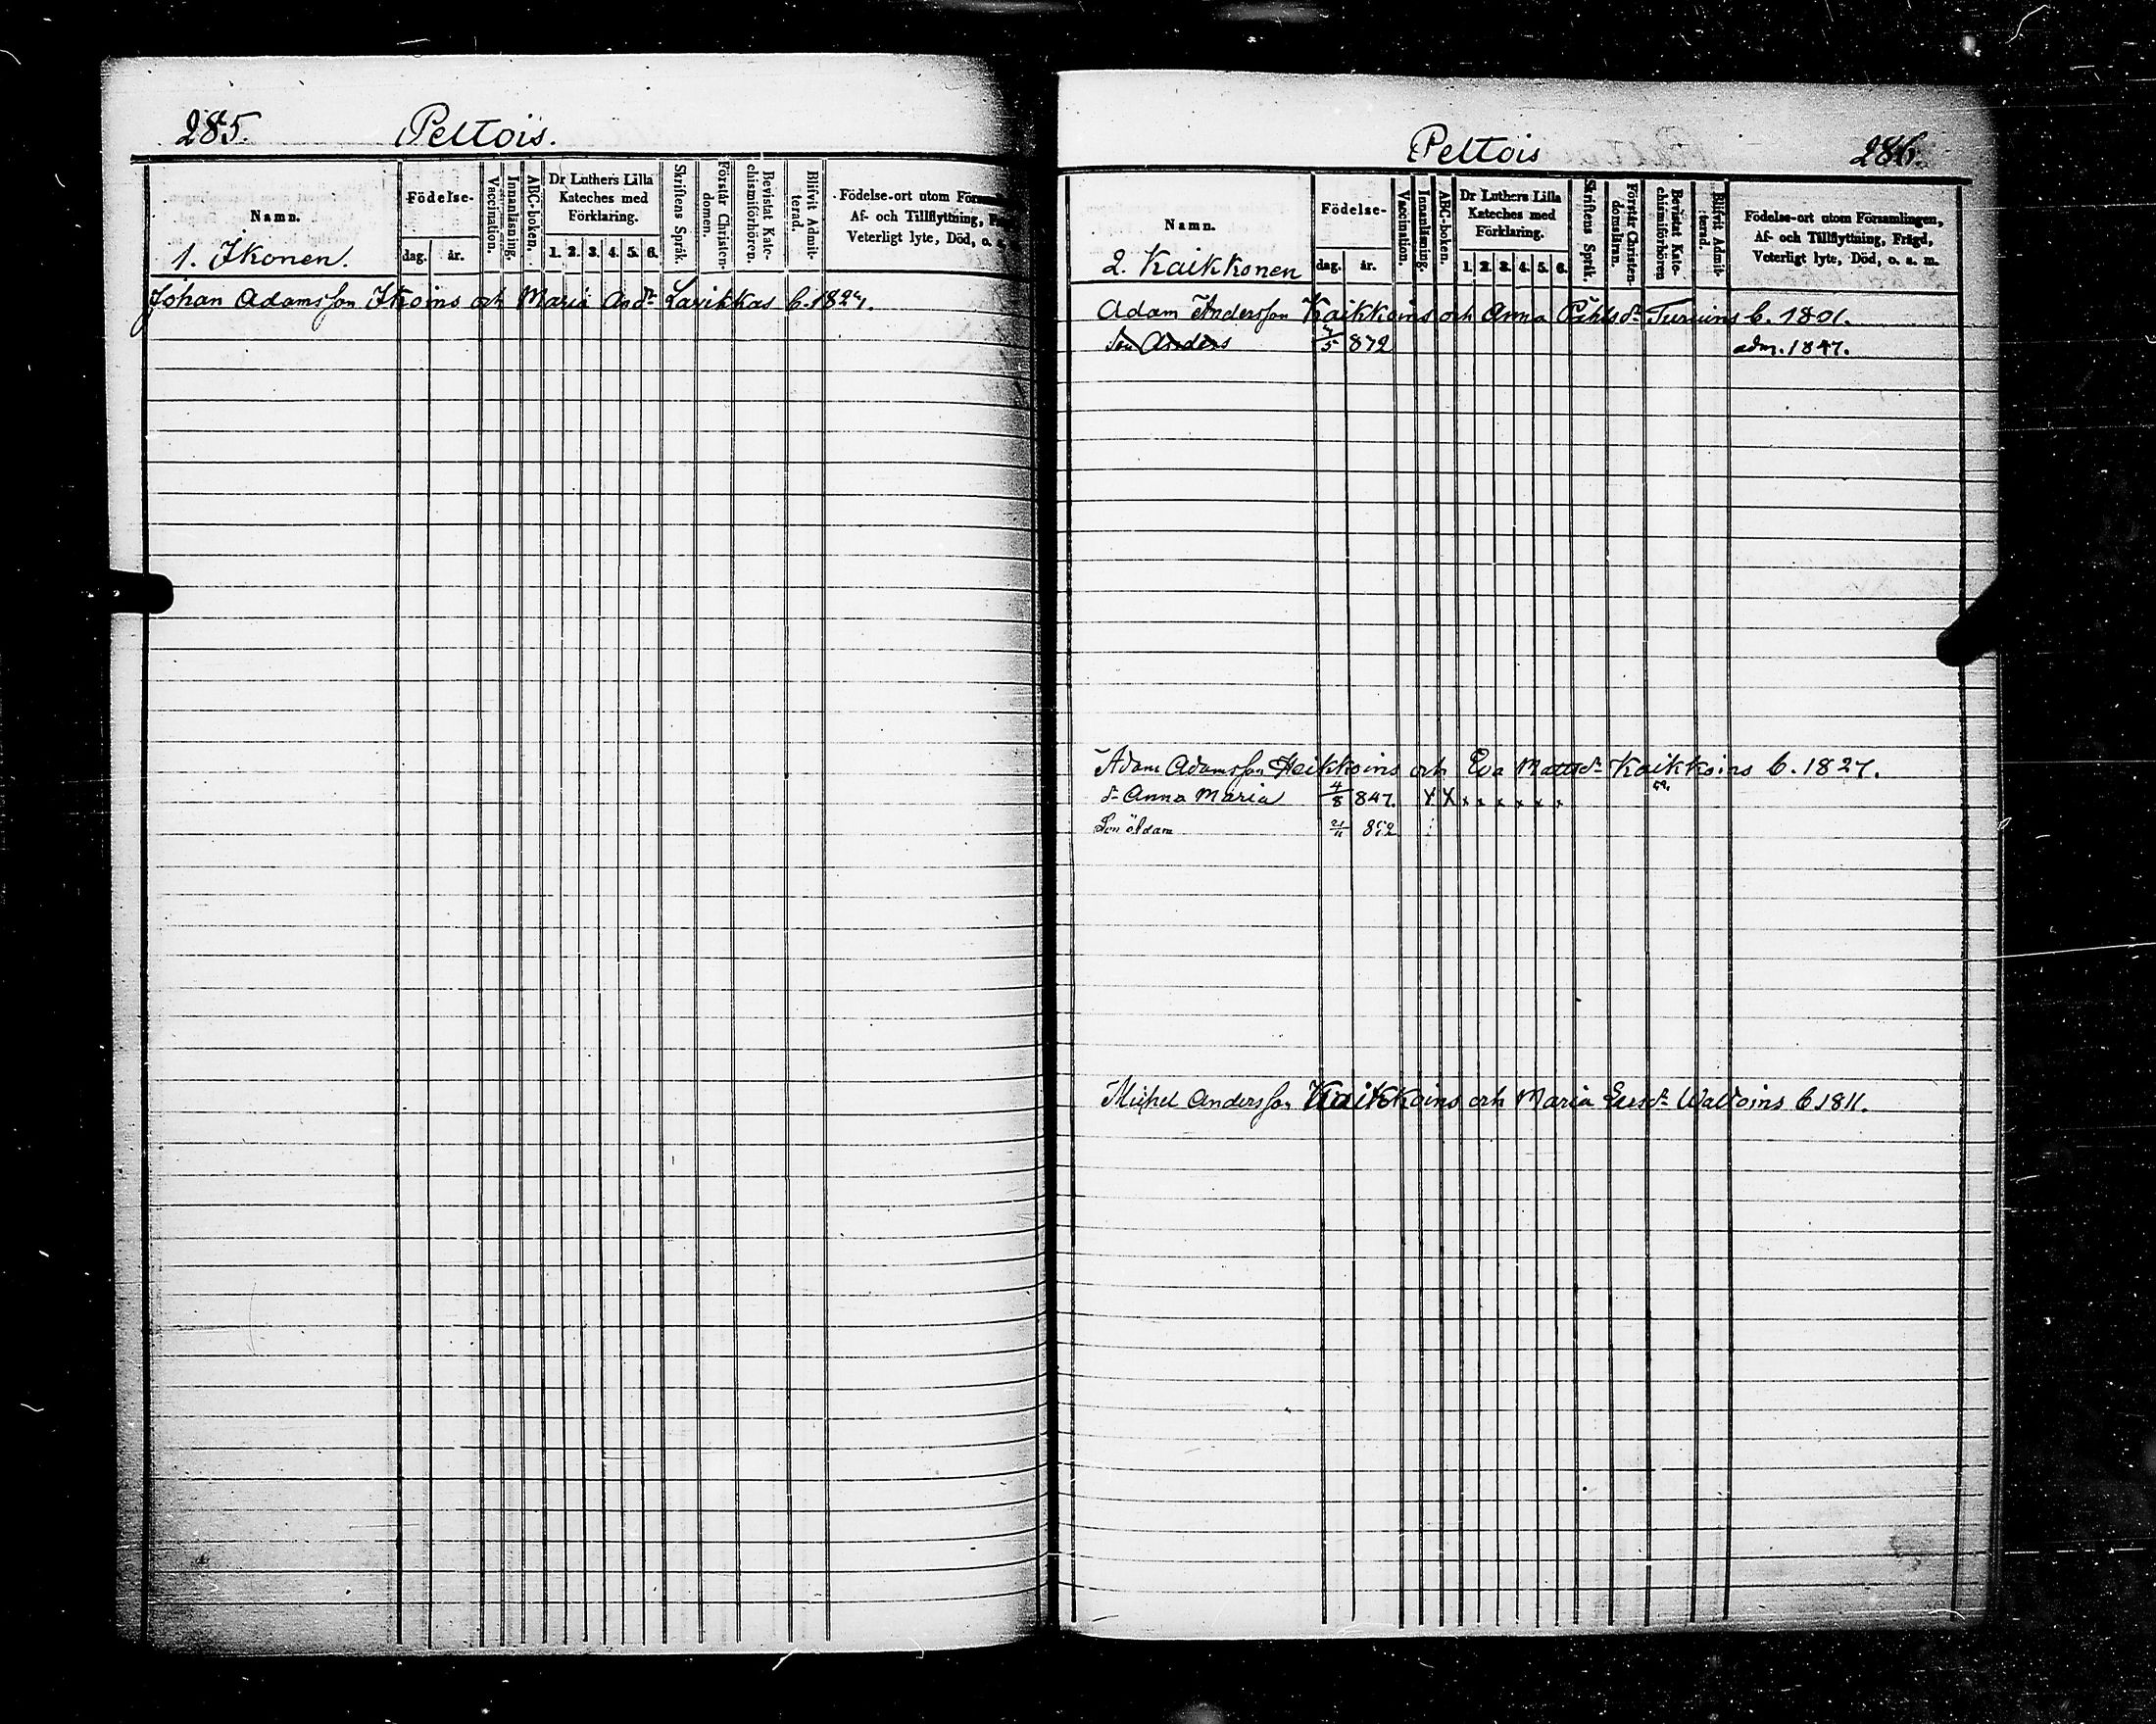 285. Peltois.
Namn.
Födelse-
dag. år.
Vaccination.
Innanläsning.
ABC-boken.
Dr Luthers Lilla
Kateches med
Förklaring.
1. 2. 3. 4. 5. 6.
Skriftens Språk.
Förstår Christen-
domen.
Bevistat Kate-
chismiförhören.
Blifvit Admit-
terad.
Födelse-ort utom
Af- och Tillflyttning,
Veterligt lyte, Död, o. s.
1. Ikonen.
Johan Adamsson Ikoins och Maria And:dr Larikkas C. 1827.
Peltois 286.
Namn.
Födelse-
dag. år.
Vaccination.
Innanläsning.
ABC-boken.
Dr Luthers Lilla
Kateches med
Förklaring.
1. 2. 3. 4. 5. 6.
Skriftens Språk.
Förstår Christen-
domsläran.
Bevistat Kate-
chismiförhören
Blifvit Admit-
terad.
Födelse-ort utom Församlingen,
Af- och Tillflyttning, Frägd,
Veterligt lyte, Död, o. s. m.
2. Kaikkonen
Adam Andersson Kaikkoins och Anna Pihlsdr Turuins C. 1801.
Son Anders 5 adm. 1847.
Adam Adamsson Heikkoins och Eva Mattsdr Kaikkoins C. 1827.
dr Anna Maria 4/8 847. X X x x x x x x
Son Adam 852
Michel Andersson Kaikkoins och Maria Ersdr Waltoins C 1811.